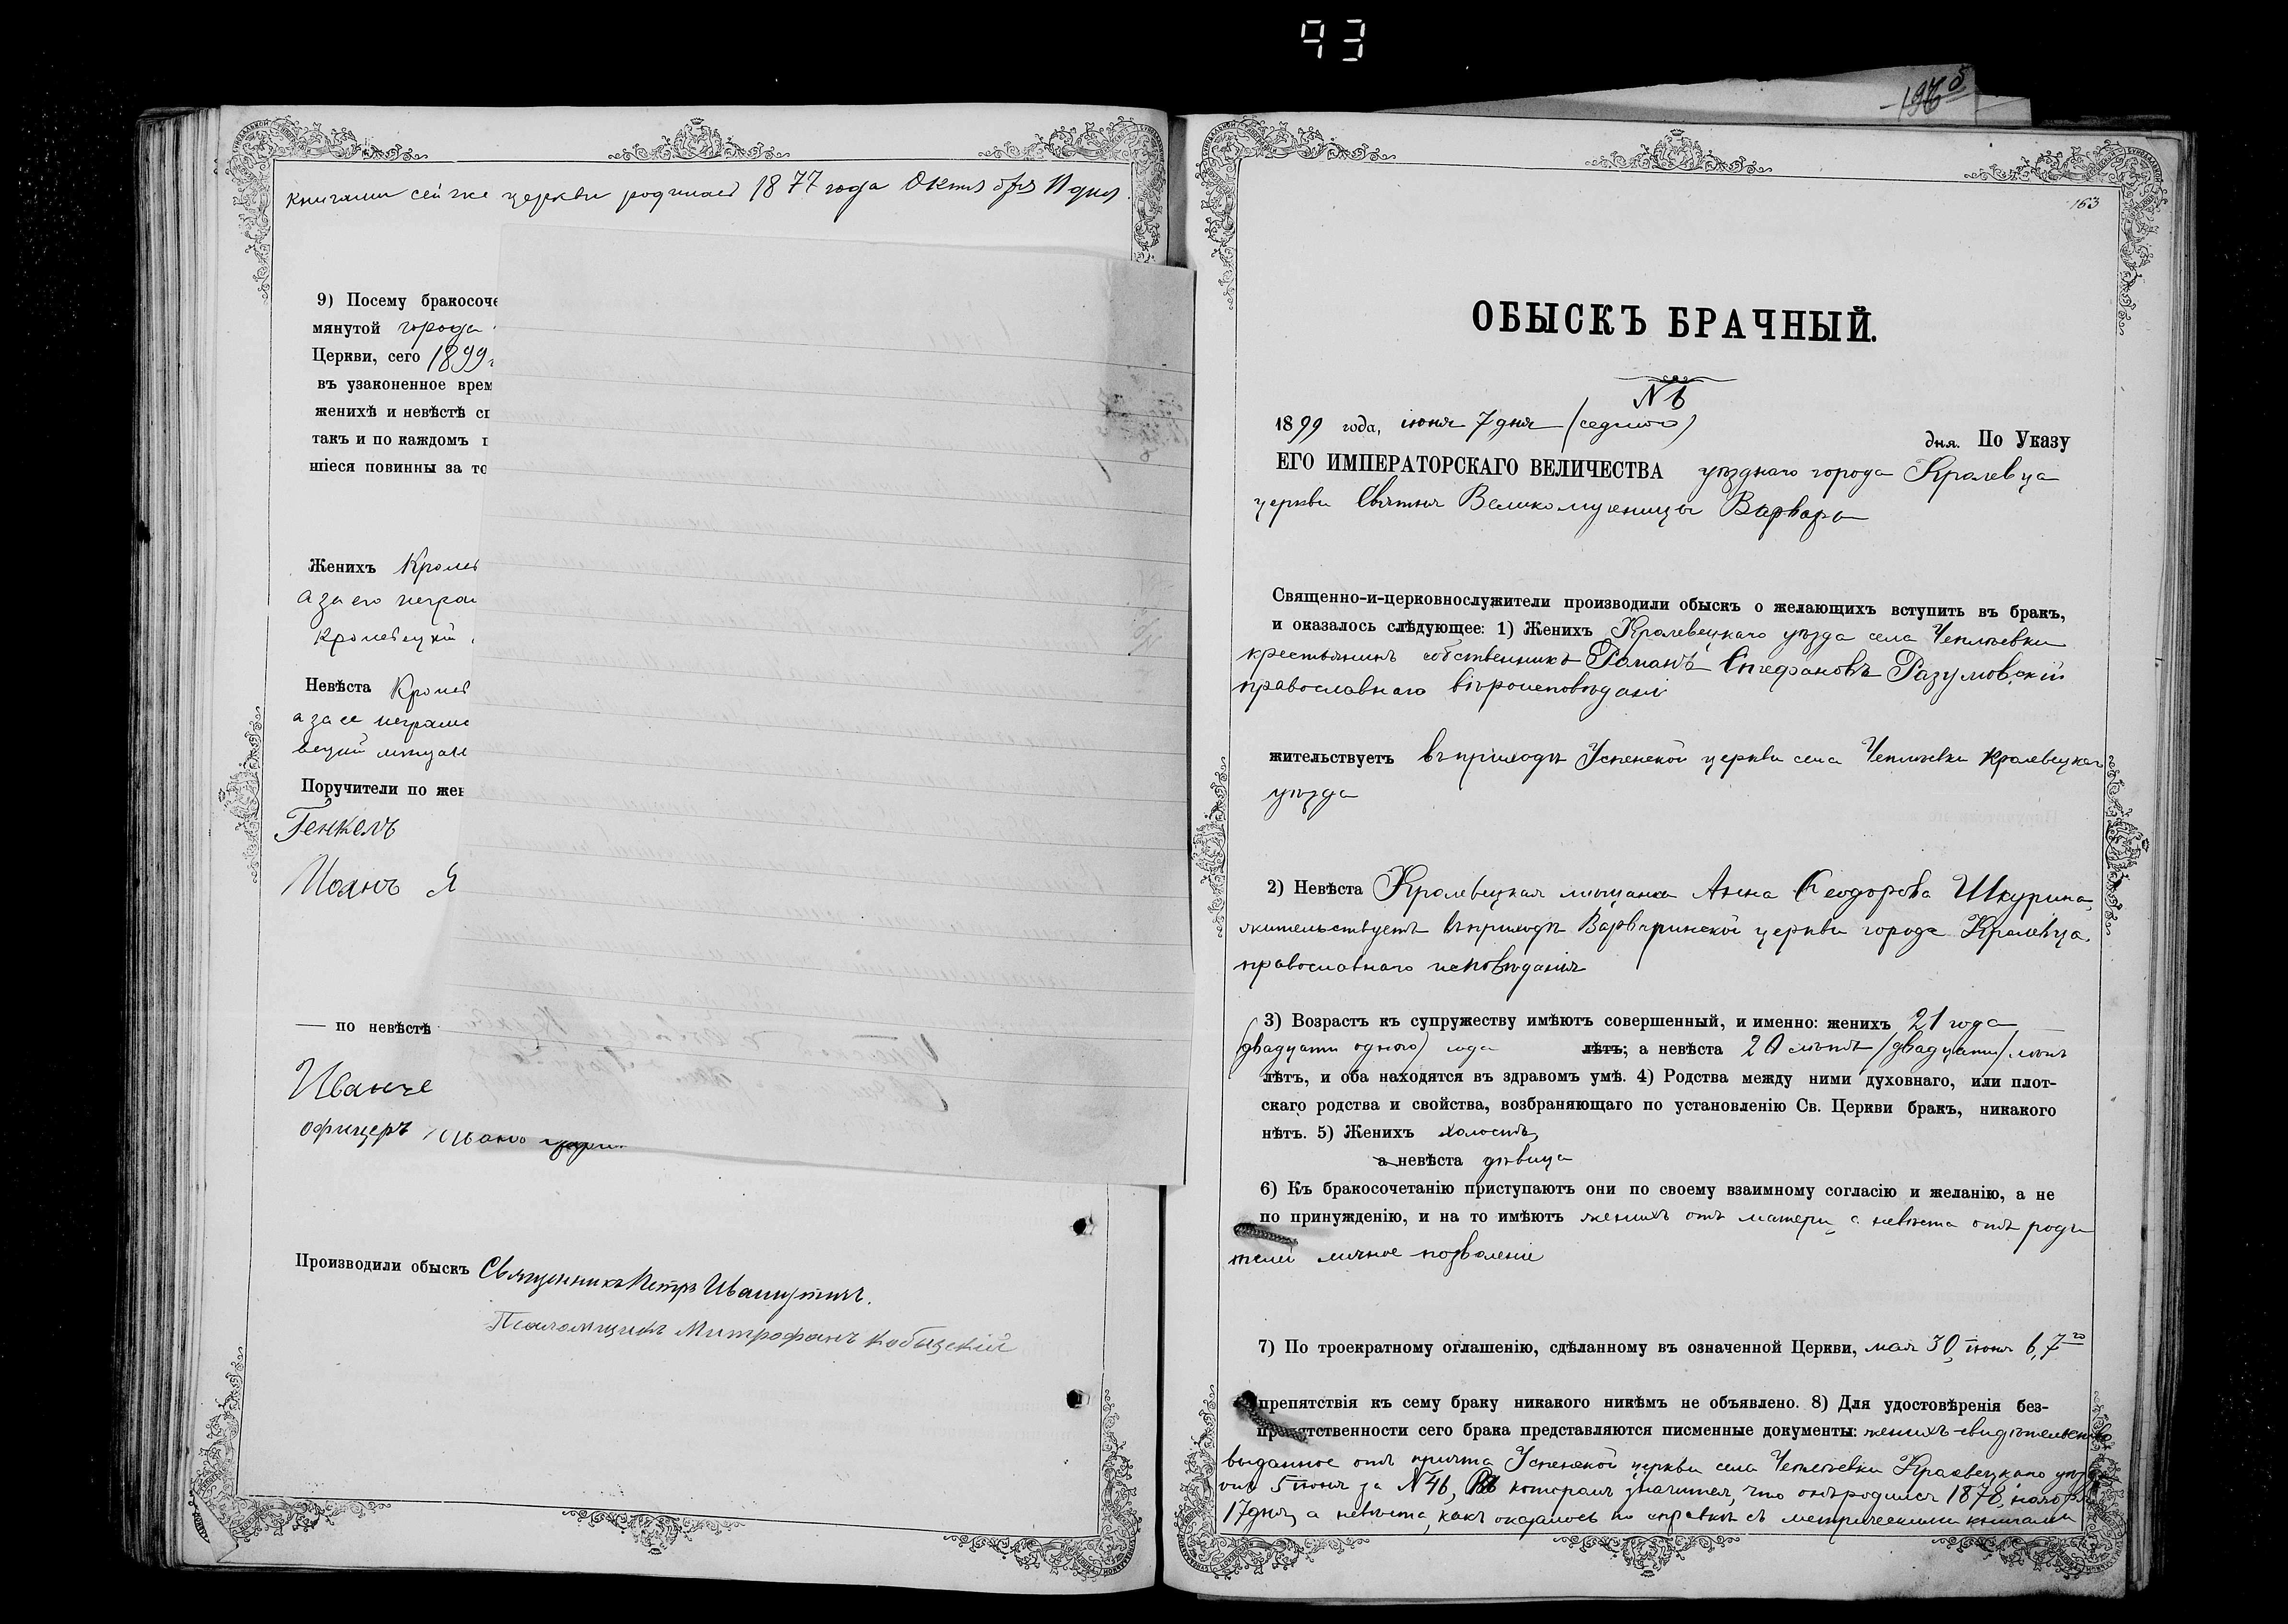 93
196
книгами сей же церкви родилась 1877 года Октября 11 дня.
9) Посему бракосоче
мянутой города
Церкви, сего 1899 г
въ узаконенное врем
женихѣ и невѣстѣ сп
такъ и по каждомъ п
шіеся повинны за то
Женихъ Кролев
а за его неграм
Кролевецкій
Невѣста Кролев
а за ее неграмо
вецкій мѣщан
Поручители по жен
Генкель
Иоанъ Я
— по невѣстѣ
Иванче
офицеръ Иванъ
Производили обыскъ Священникъ Петръ Иваницкій.
Псаломщикъ Митрофанъ Кобыцскій
163
ОБЫСКЪ БРАЧНЫЙ.
N 6
1899 года, іюня 7 дня (седьмого) дня. По Указу
ЕГО ИМПЕРАТОРСКАГО ВЕЛИЧЕСТВА уѣзднаго города Кролевца
церкви Святыя Великомученицы Варвары
Священно-и-церковнослужители производили обыскъ о желающихъ вступить въ бракъ,
и оказалось слѣдующее: 1) Женихъ Кролевецкаго уѣзда села Чепліевки
крестьянинъ собственникъ Романъ Стефановъ Разумовскій
православнаго вѣроисповѣданія
жительствуетъ въ приходѣ Успенской церкви села Чепліевки Кролевецкаго
уѣзда
2) Невѣста Кролевецкая мѣщанка Анна Ѳеодорова Шкурина,
жительствуетъ въ приходѣ Варваринской церкви города Кролевца,
православнаго исповѣданія
3) Возрастъ къ супружеству имѣютъ совершенный, и именно: женихъ 21 года
(двадцати одного) года лѣтъ; а невѣста 20 лѣтъ (двадцати) лѣтъ
лѣтъ, и оба находятся въ здравомъ умѣ. 4) Родства между ними духовнаго, или плот-
скаго родства и свойства, возбраняющаго по установленію Св. Церкви бракъ, никакого
нѣтъ. 5) Женихъ холостъ,
а невѣста дѣвица
6) Къ бракосочетанію приступаютъ они по своему взаимному согласію и желанію, а не
по принужденію, и на то имѣютъ женихъ отъ матери, а невѣста отъ роди
телей личное позволеніе
7) По троекратному оглашенію, сдѣланному въ означенной Церкви, мая 30, іюня 6, 7го
препятствія къ сему браку никакого никѣмъ не объявлено. 8) Для удостовѣренія без-
препятственности сего брака представляются писменные документы: женихъ-свидѣтельство
выданное отъ причта Успенской церкви села Чепліевки Кролевецкаго уѣзда
отъ 5 іюня за N 46, въ которомъ значится, что онъ родился 1878, ноября
17 дня, а невѣста, какъ оказалось по справкѣ съ метрическими книгами